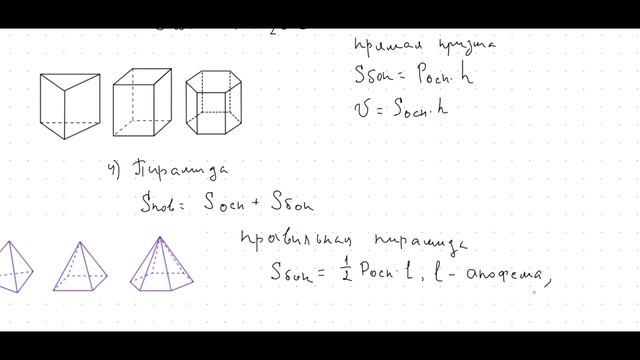 прямая призма
Sбок = Pосн · h
V = Sосн · h
4) Пирамида
Sпов = Sосн + Sбок
правильная пирамида
Sбок = 1/2 Pосн · l, l - апофема,